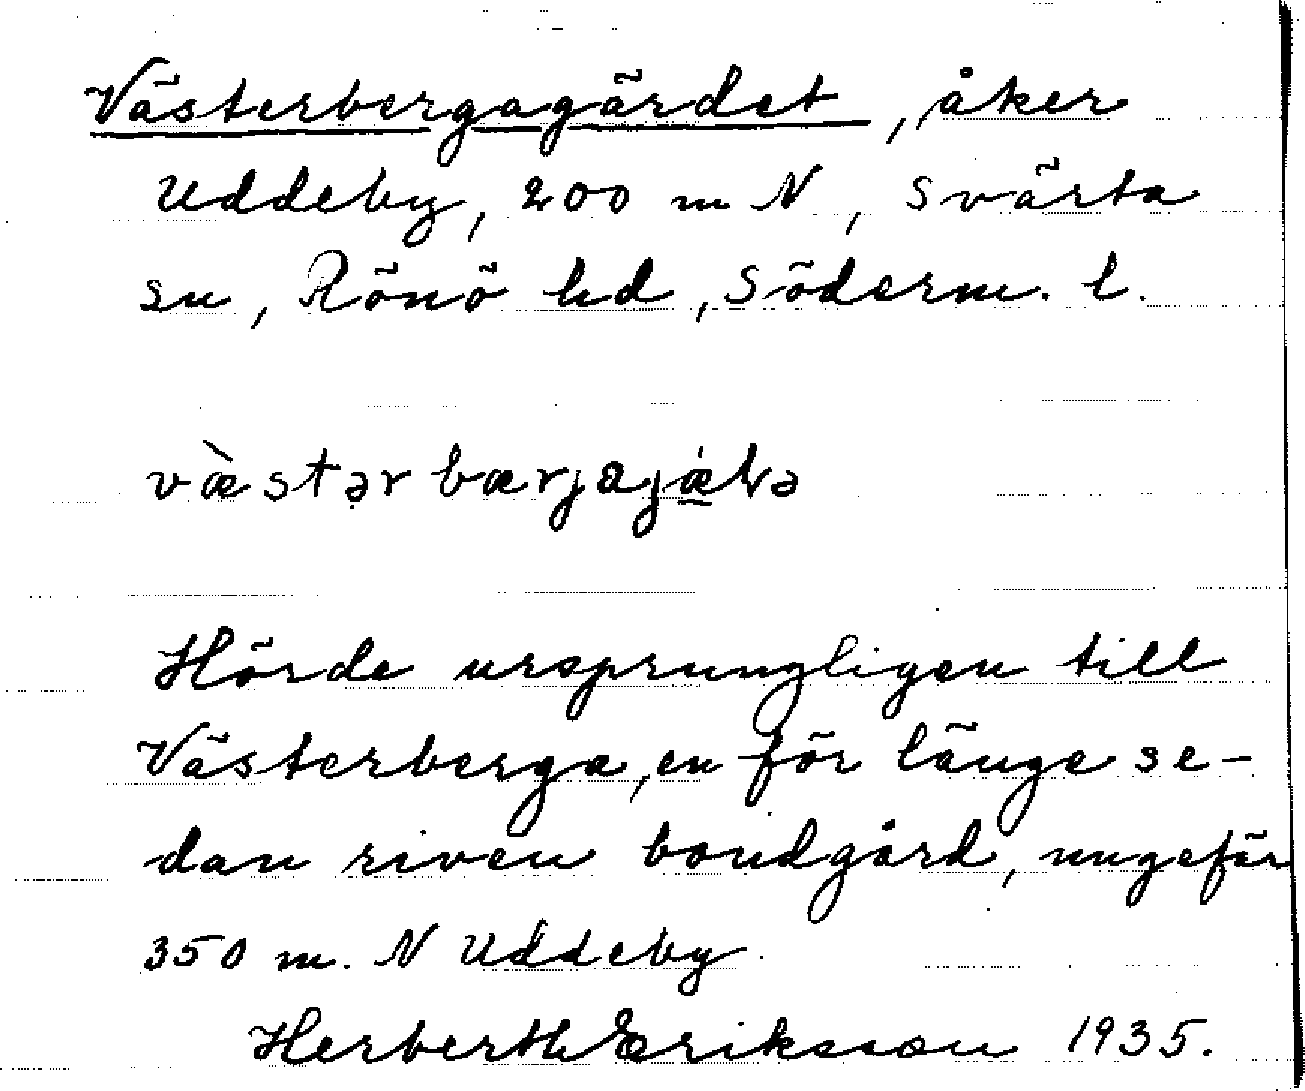 Västerbergagärdet, åker
Uddeby, 200 m N, Svärta
sn, Rönö hd, Söderm. l.
væ̀stərbærjajǽ̲ɭə
Hörde ursprungligen till
Västerberga, en för länge se-
dan riven bondgård, ungefär
350 m. N Uddeby.
Herberth Eriksson 1935.